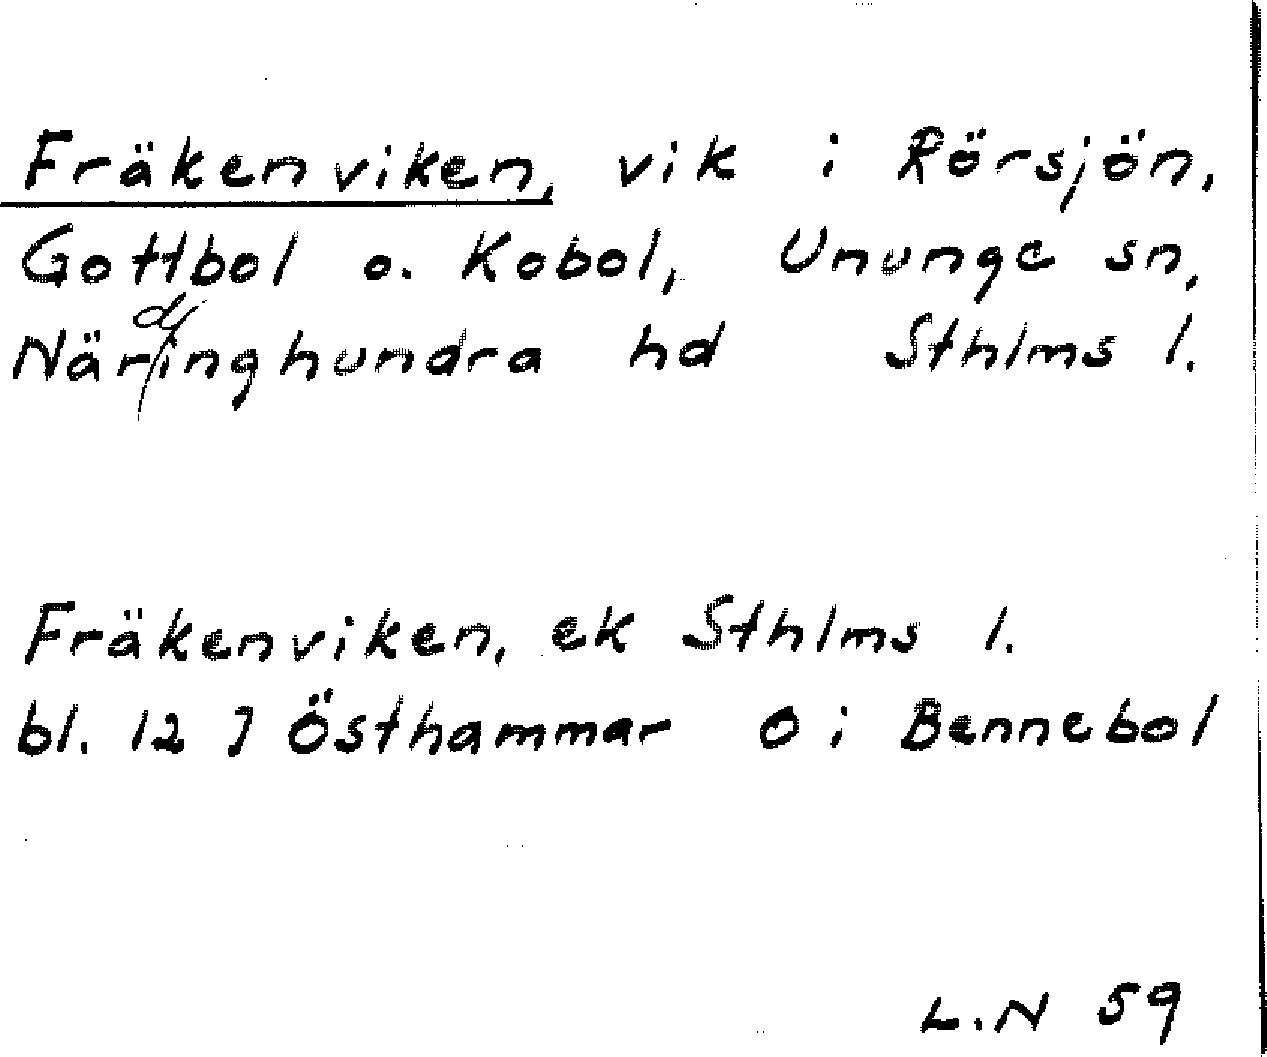 Fräkenviken, vik i Rörsjön,
Gottbol o. Kobol, Ununge sn,
Närdinghundra hd Sthlms l.
Fräkenviken, ek Sthlms l.
bl. 12 J Östhammar O i Bennebol
L.N 59